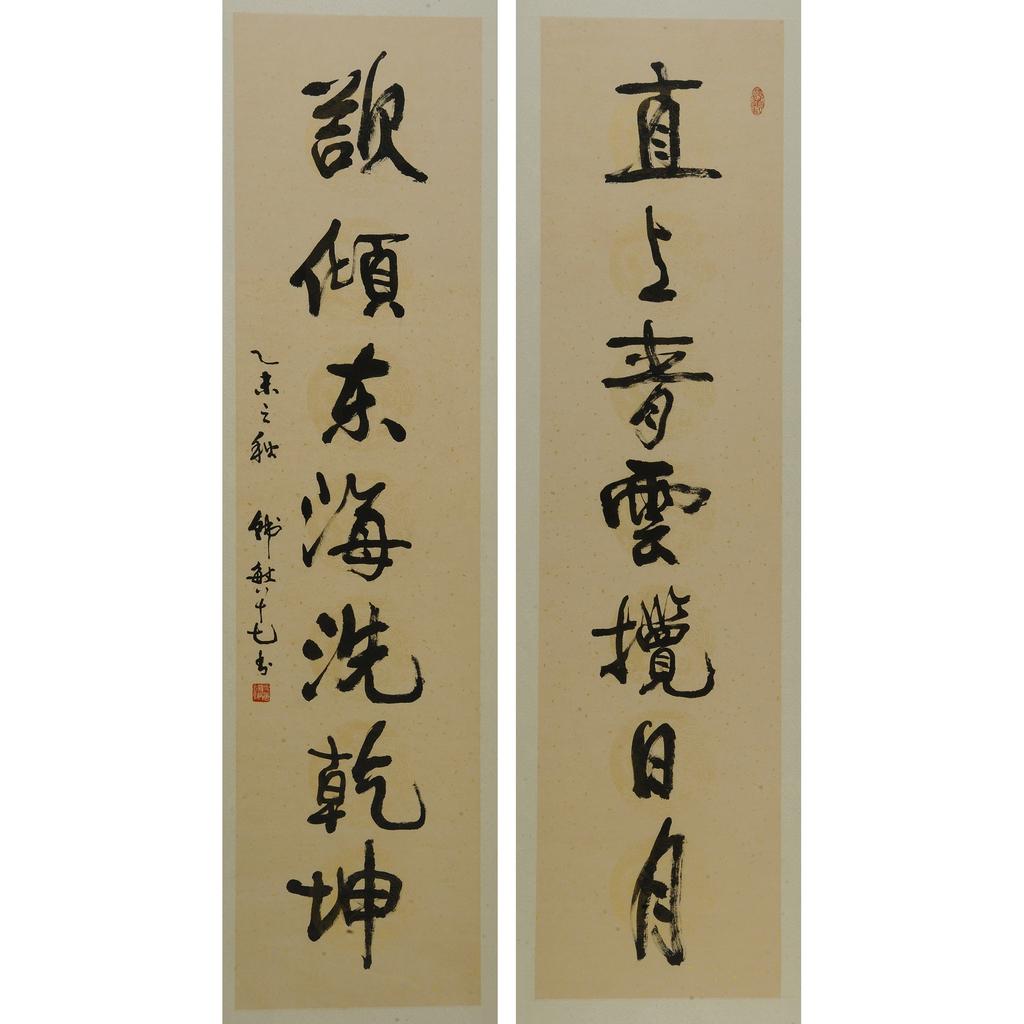 直上青雲攬日月
欲傾东海洗乾坤
乙未之秋 韩敏八十七书